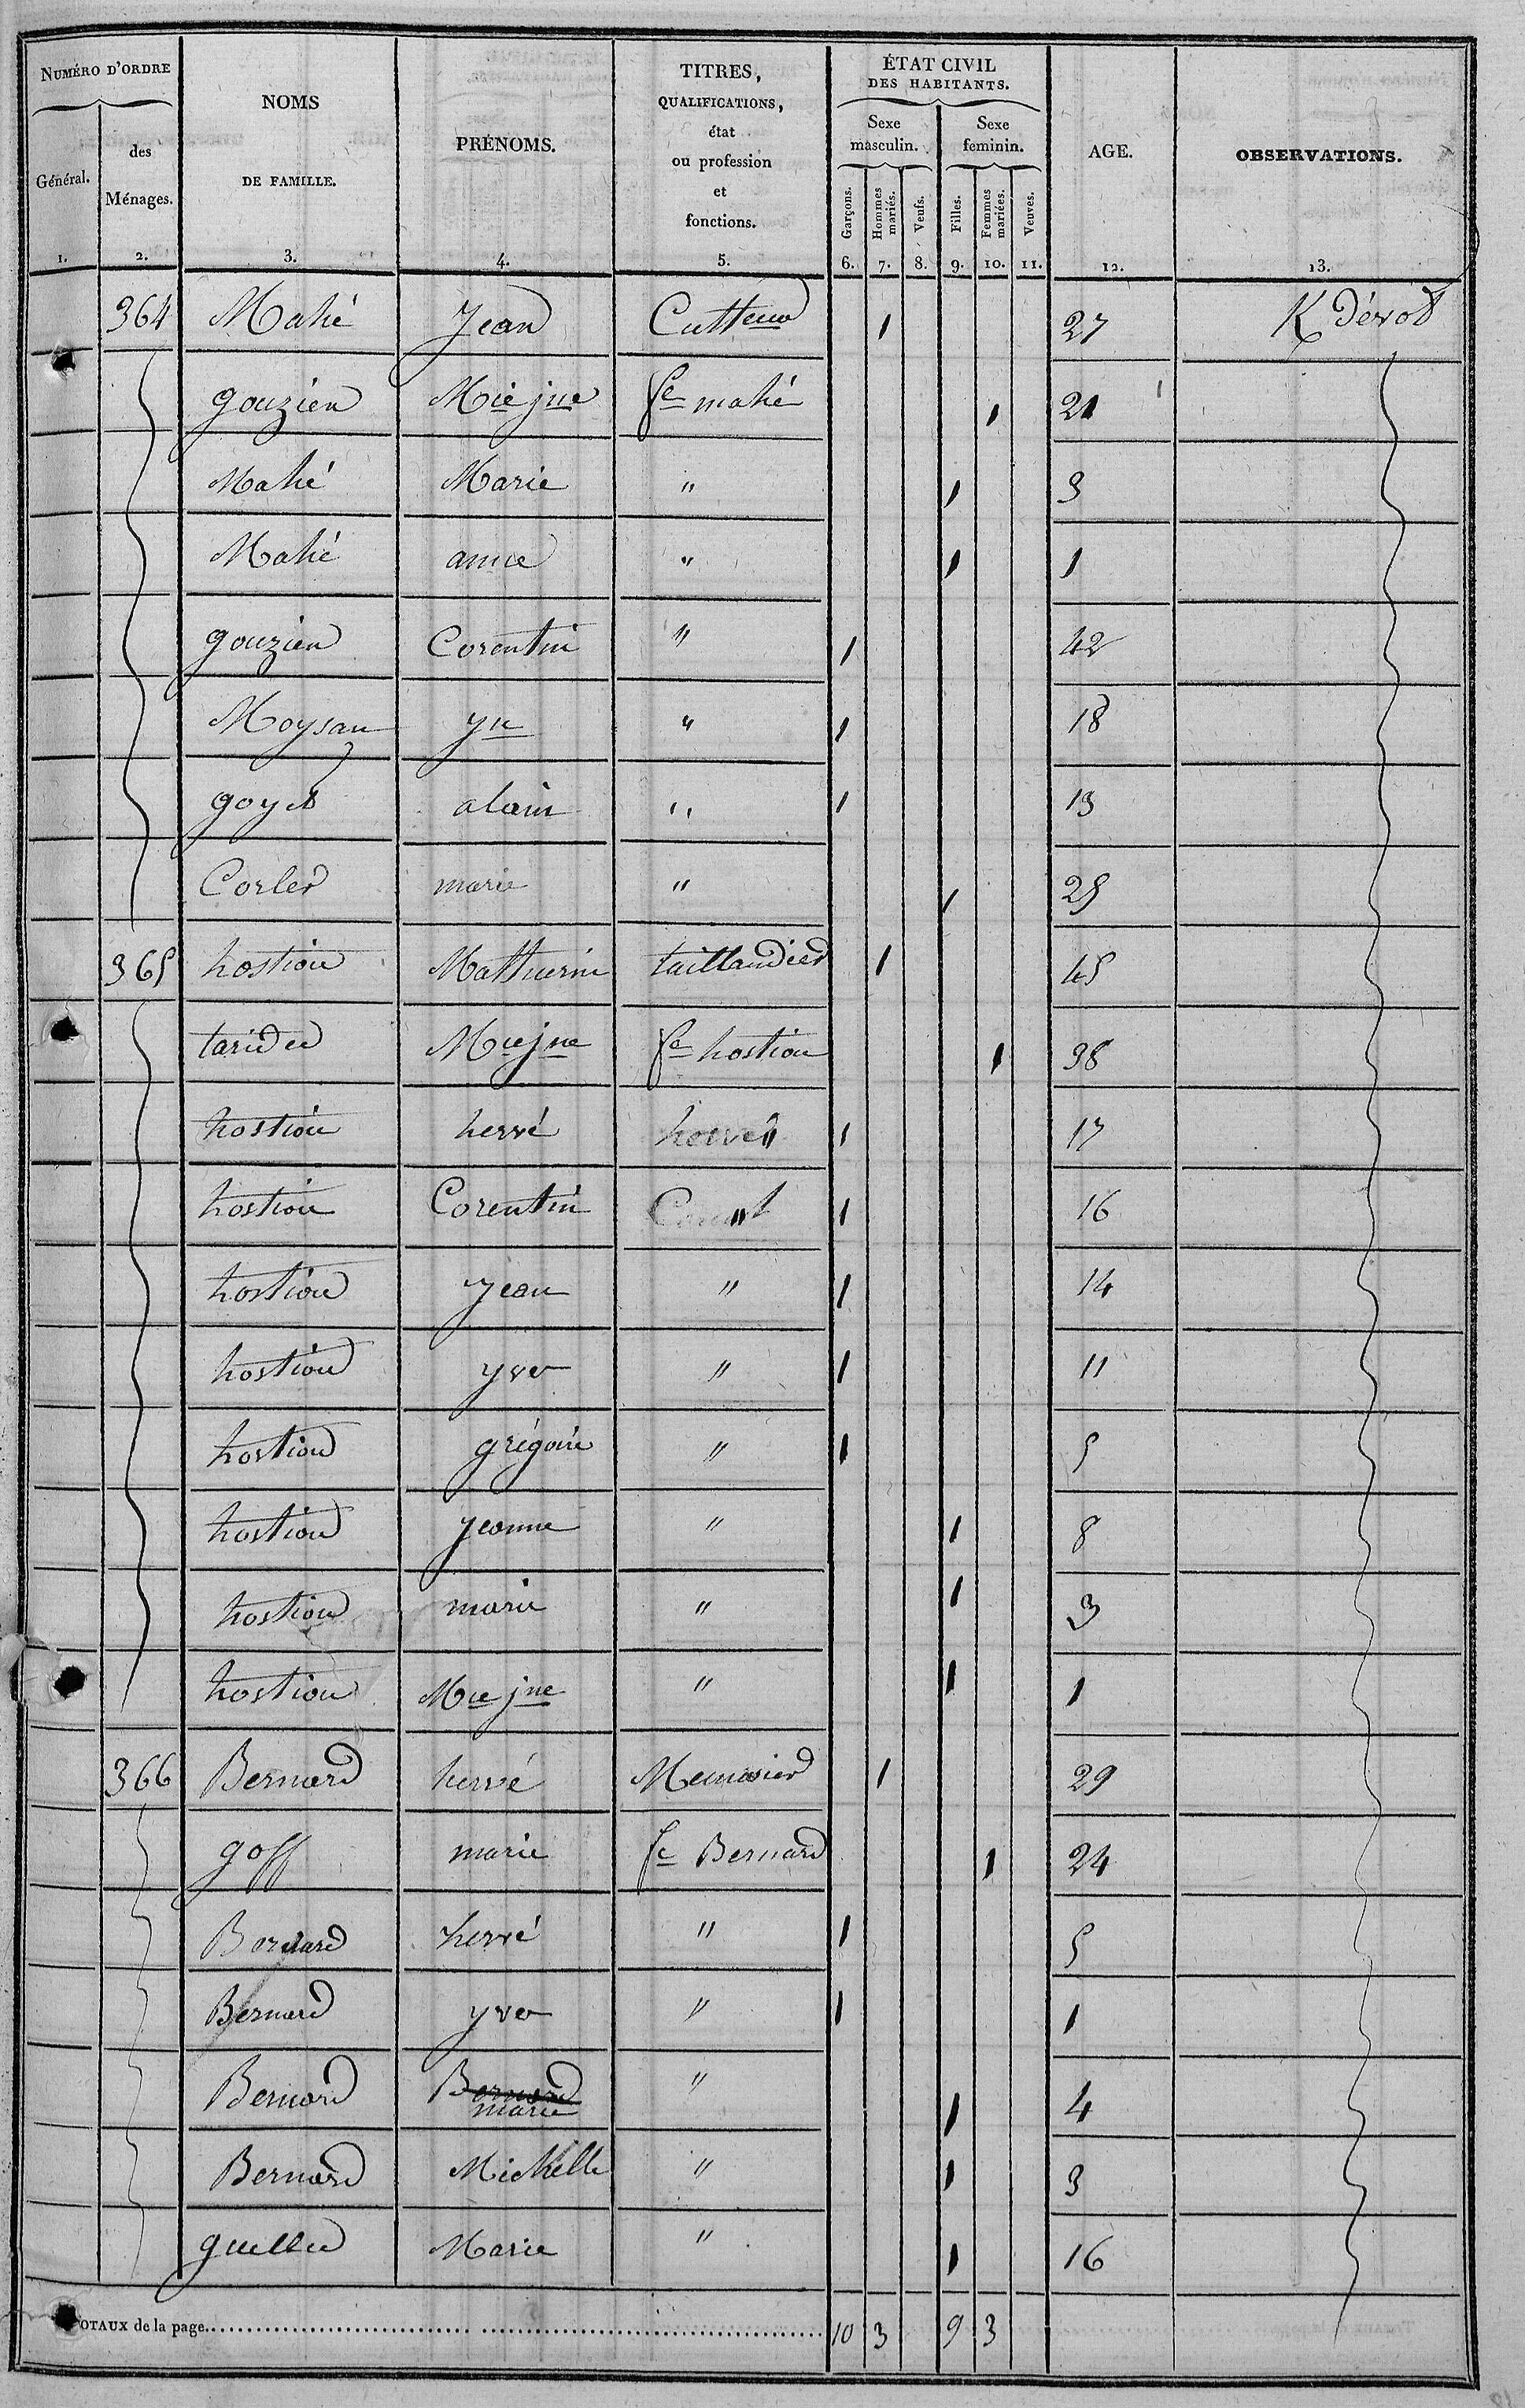 NUMÉRO D'ORDRE
Général.
des
Ménages.
NOMS
DE FAMILLE.
PRÉNOMS.
TITRES,
QUALIFICATIONS,
état
ou profession
et
fonctions.
ÉTAT CIVIL
DES HABITANTS.
Sexe
masculin.
Sexe
feminin.
Garçons.
Hommes
mariés.
Veufs.
Filles.
Femmes
mariées.
Veuves.
AGE.
OBSERVATIONS.
1. 2. 3. 4. 5. 6. 7. 8. 9. 10. 11. 12. 13.
364 Mahé Jean 1 27
gouzien Mie jne fe mahé 1 21
Mahé Marie " 1 3
Mahé anne " 1 1
gouzien Corentin " 1 42
Moysan yn " 1 18
goyet alain " 1 13
Corler marie " 1 25
365 hostiou Mathurin taillandier 1 45
taridec Mie jne fe hostiou 1 38
hostiou hervé " 1 17
hostiou Corentin " 1 16
hostiou Jean " 1 14
hostiou yves " 1 11
hostiou grégoire " 1 5
hostiou Jeanne " 1 8
hostiou marie " 1 3
hostiou Mie jne " 1 1
366 Bernard hervé Menuisier 1 29
goff marie fe Bernard 1 24
Bernard hervé " 1 5
Bernard yves " 1 1
Bernard Bernard marie " 1 4
Bernard Michelle " 1 3
guellec Marie " 1 16
TOTAUX de la page 10 3 9 3